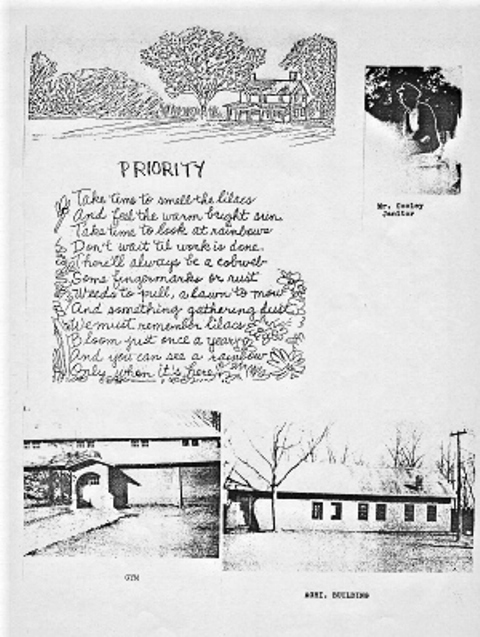 PRIORITY
Take time to smell the lilacs
And feel the warm bright sun.
Take time to look at rainbows
Don't wait til work is done.
There'll always be a cobweb
Some fingermarks or rust
Weeds to pull, a lawn to mow
And something gathering dust
We must remember lilacs
Bloom just once a year
And you can see a rainbow
Only when it's here.
Mr. Cooley
Janitor
GYM
AGRI. BUILDING